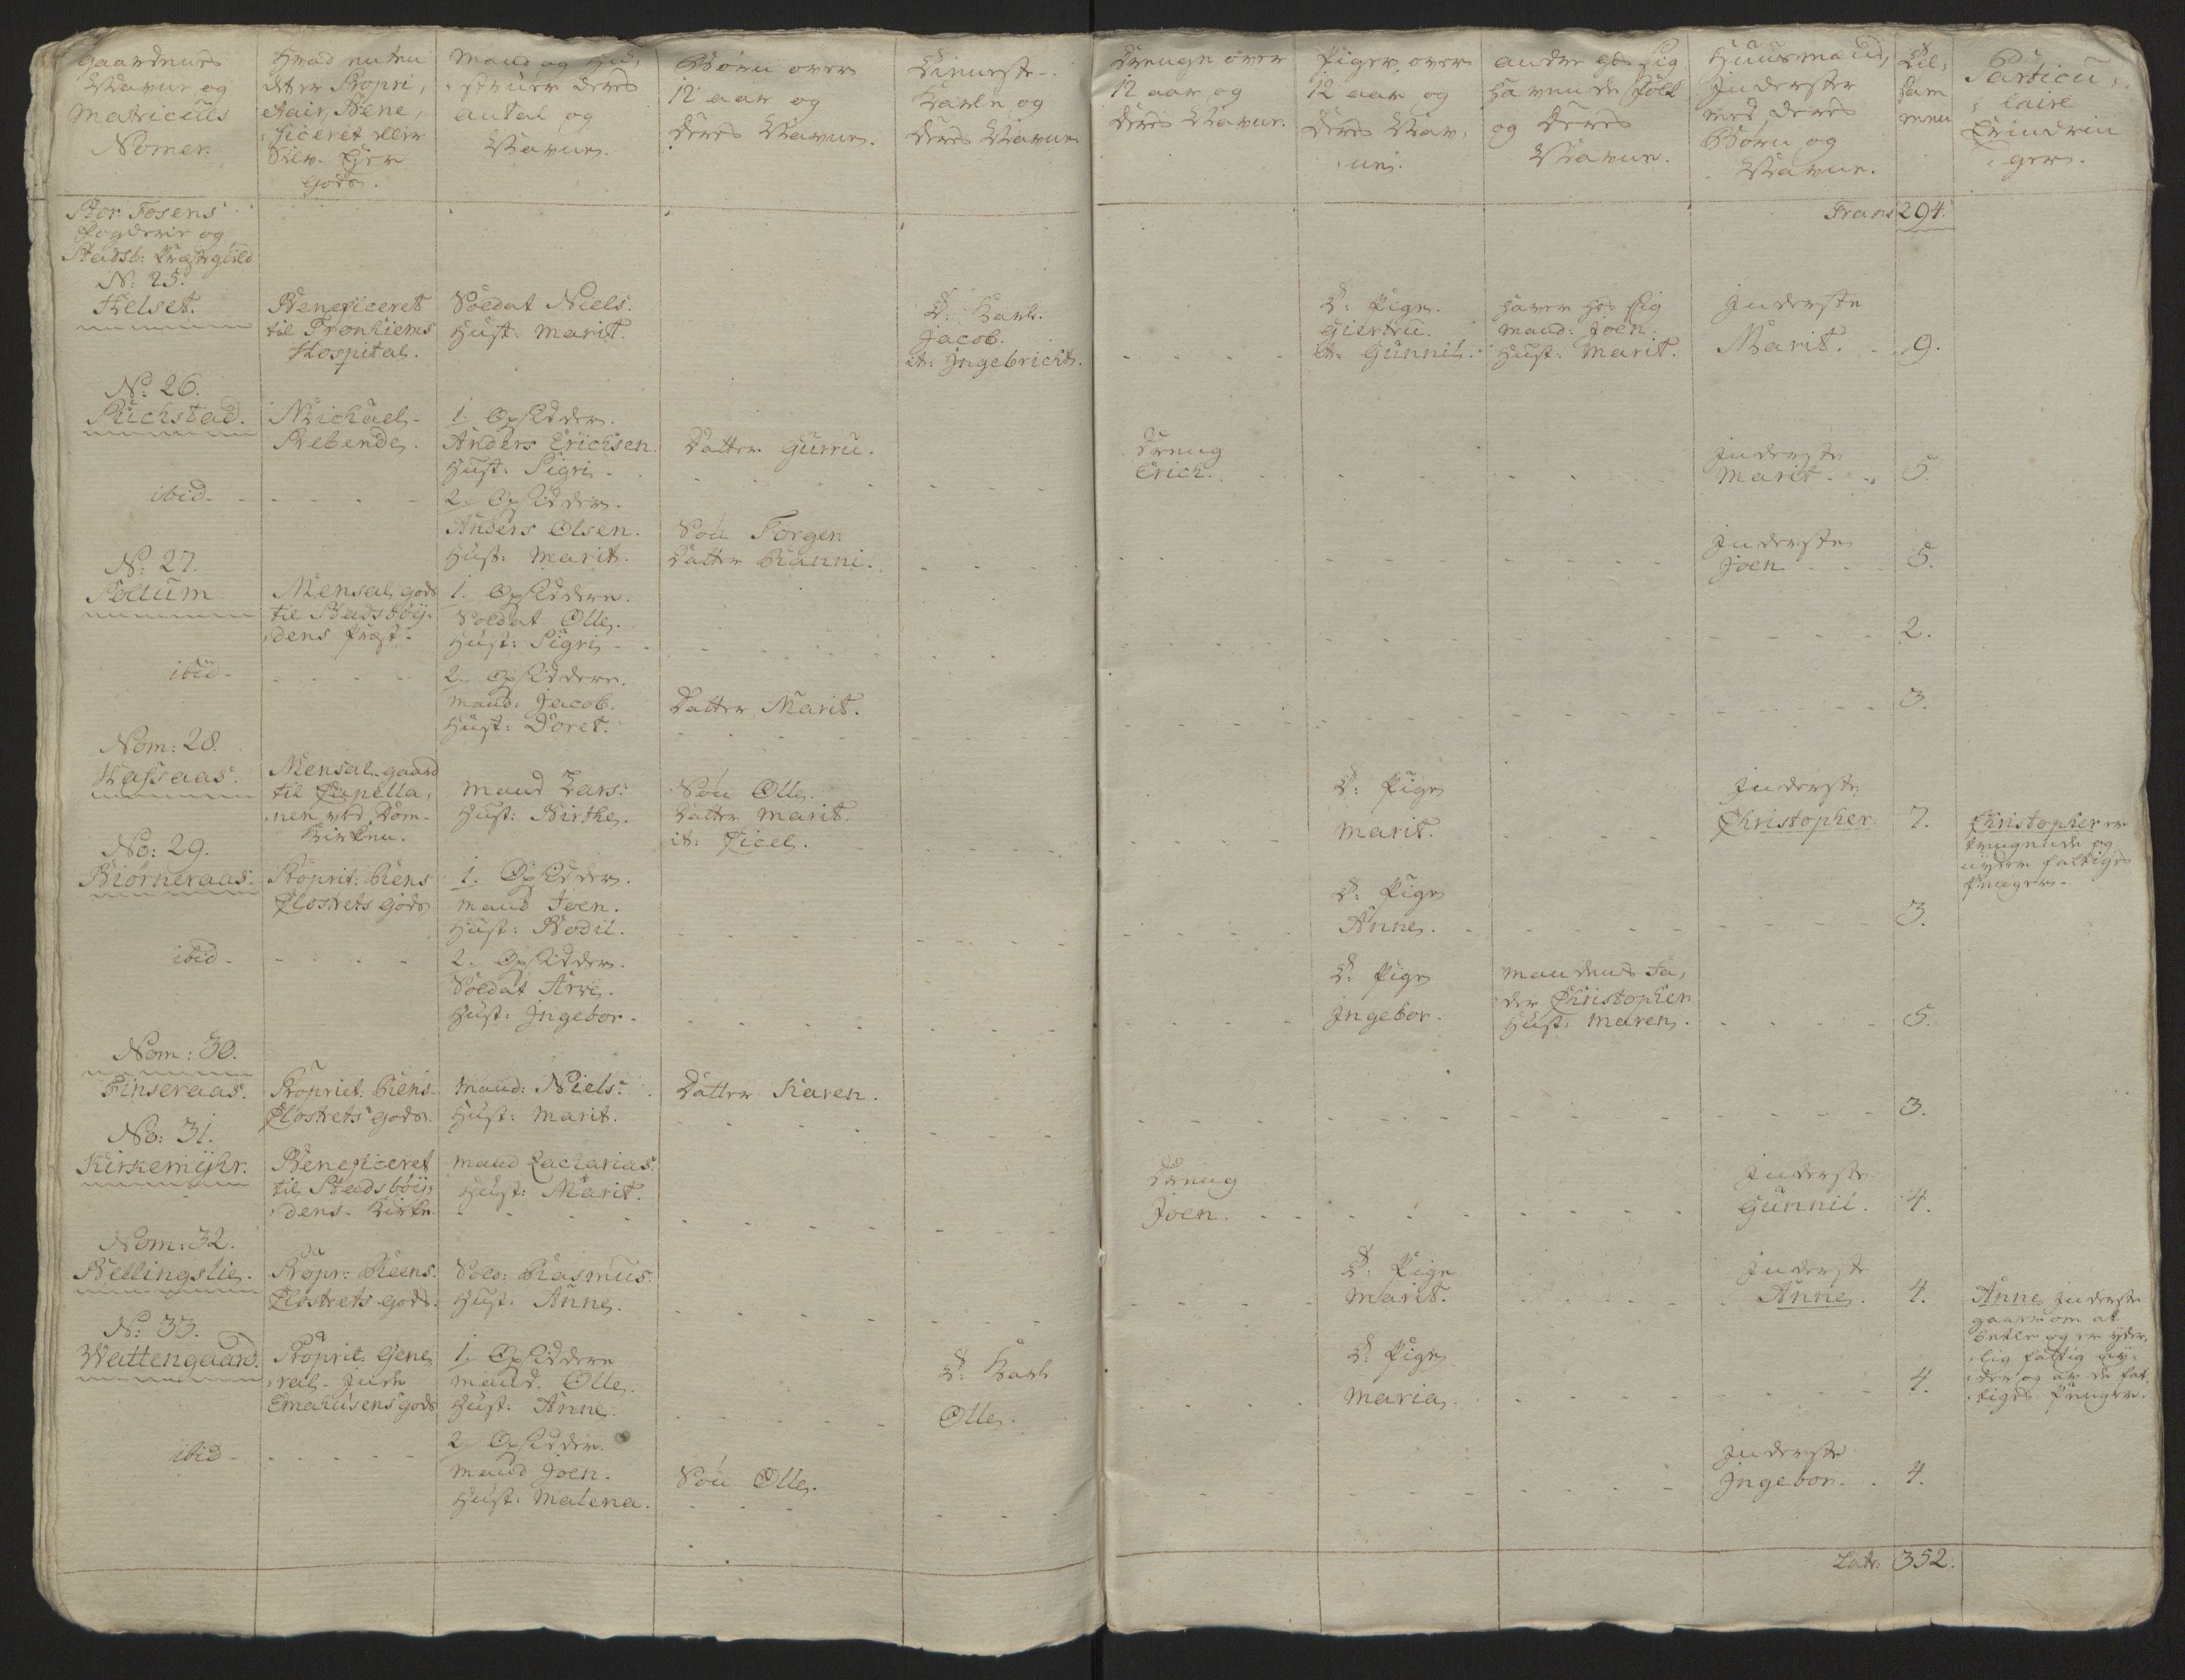 Gaardenes
Navne og
Matriculs
Nomer.
Hvad enten
det er Propri,
etair, Bene,
ficeret eller
Selv Ejer
Gods.
Mand og Hu,
struer deres
antal og
Navne.
Børn over
12 aar og
deres Navne.
Tieneste
Karle og
deres Navne
Drenge over
12 aar og
deres Navne.
Piger over
12 aar og
deres Nav,
ne.
andre hos sig
havende Folk
og deres
Navne.
Huusmænd,
Inderster
med deres
Børn og
Navne.
Til,
sam
men
Particu,
laire
Erindrin
ger.
Stor Fosens
Fogderie og
Stadsb: Præstegield
Trans 294.
N: 25.
Helset.
Beneficeret
til Tronhiems
Hospital.
Soldat Niels.
Hust: Marit.
T: Karl.
Jacob.
it: Ingebricht.
T: Pige.
Giertru.
it: Gunnil.
haver hos sig
mand: Joen.
Hust: Marit.
Inderste
Marit. 9.
No: 26.
Richstad.
Michaels
Prebende.
1. Opsidder.
Anders Erichsen.
Hust: Sigri.
Datter Gurru.
Dreng
Erich.
Inderste
Marit. 5.
ibid.
2. Opsidder.
Anders Olsen.
Hust: Marit.
Søn Torger
Datter Ranni.
Inderste
Joen 5.
N: 27.
Solium
Mensal gods
til Stadsbøy,
dens Præst.
1. Opsiddere.
Soldat Olle.
Hust: Sigri.
2.
ibid.
2. Opsiddere.
mand: Jacob.
Hust: Doret.
Datter Marit.
3.
Nom: 28.
Hassaas.
Mensal gaard
til Capella,
nen ved Dom-
Kirken.
mand Lars.
Hust: Birthe.
Søn Olle.
Datter Marit.
it: Zicel.
T: Pige
Marit.
Inderste
Christopher. 7.
Christopher er
trengende og
nyder fattiges
Penger.
No: 29.
Biørneraas.
Proprit: Riens
Closters Gods
1. Opsidder.
mand Joen.
Hust: Bodil.
T: Pige
Anne.
3.
ibid.
2. Opsidder.
Soldat Arve.
Hust: Ingebor.
T: Pige
Ingebor.
mandens Fa,
der Christopher
Hust: Maren.
5.
Nom: 30.
Finseraas.
Propriet: Riens
Closters gods.
Mand: Niels.
Hust: Marit.
Datter Karen.
3.
No: 31.
Kirkemyhr.
Beneficeret
til Stadsbøy,
dens Kirke
Mand Zacharias.
Hust: Marit.
Dreng
Joen.
Inderste
Gunnil. 4.
Nom: 32.
Bellingslie.
Propr: Reens.
Closters gods.
Sold: Rasmus.
Hust: Anne.
T: Pige
Marit.
Inderste
Anne. 4.
Anne Inderste
gaar om at
betle og er yder,
lig fattig ny,
der og av de fat,
tiges Penger.
N: 33.
Wattengaard.
Proprit. Gene,
ral-
Emahusens gods
1. Opsiddere
mand. Olle.
Hust: Anne.
T: Karl
Olle.
T: Pige
Maria.
4.
ibid.
2. Opsidder.
mand Joen.
Hust: Malena.
Søn Olle.
Inderste
Ingebor. 4.
Latr: 352.